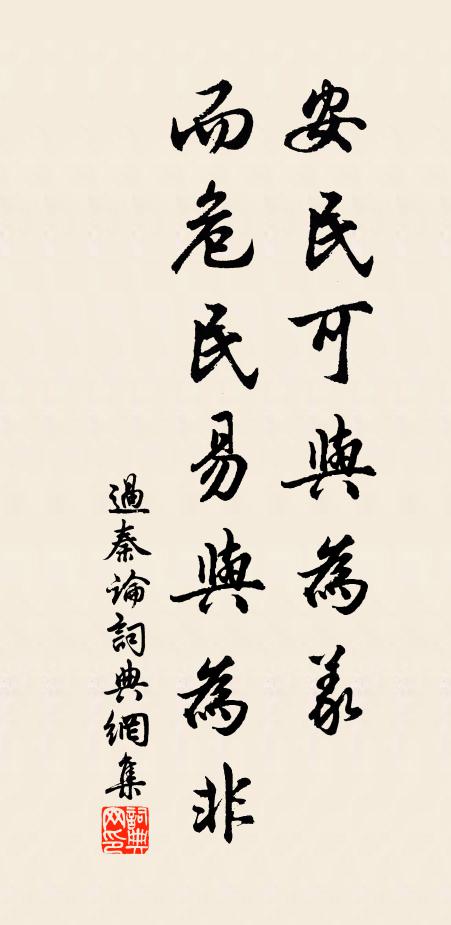 安民可與為義
而危民易與為非
過秦論詞典網集
詞典
网印